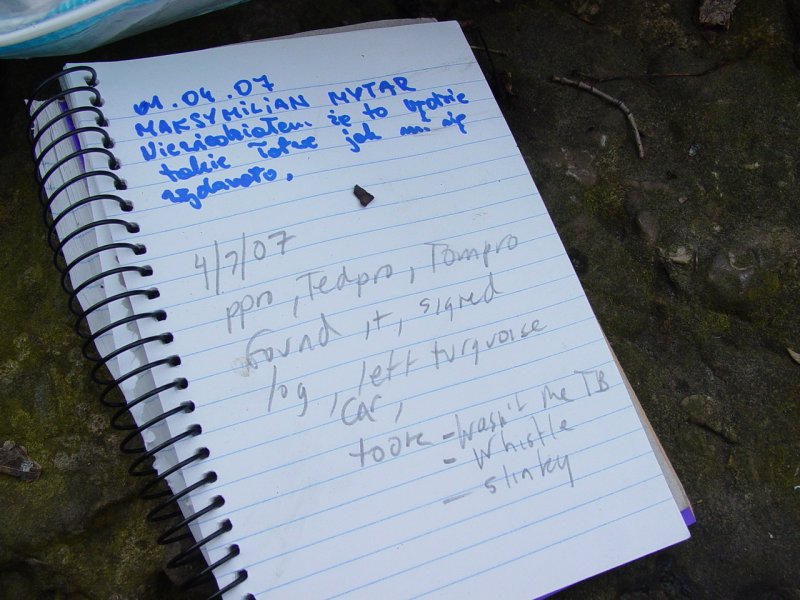 01.04.07
MAKSYMILIAN MYTAR
Niewiedziałem że to będzie
takie łatwe jak mi się
wydawało.
4/7/07
ppro, Tedpro, Tompro
found it, signed
log, left turquoise
car,
took - wasn't me TB
- whistle
- slinky